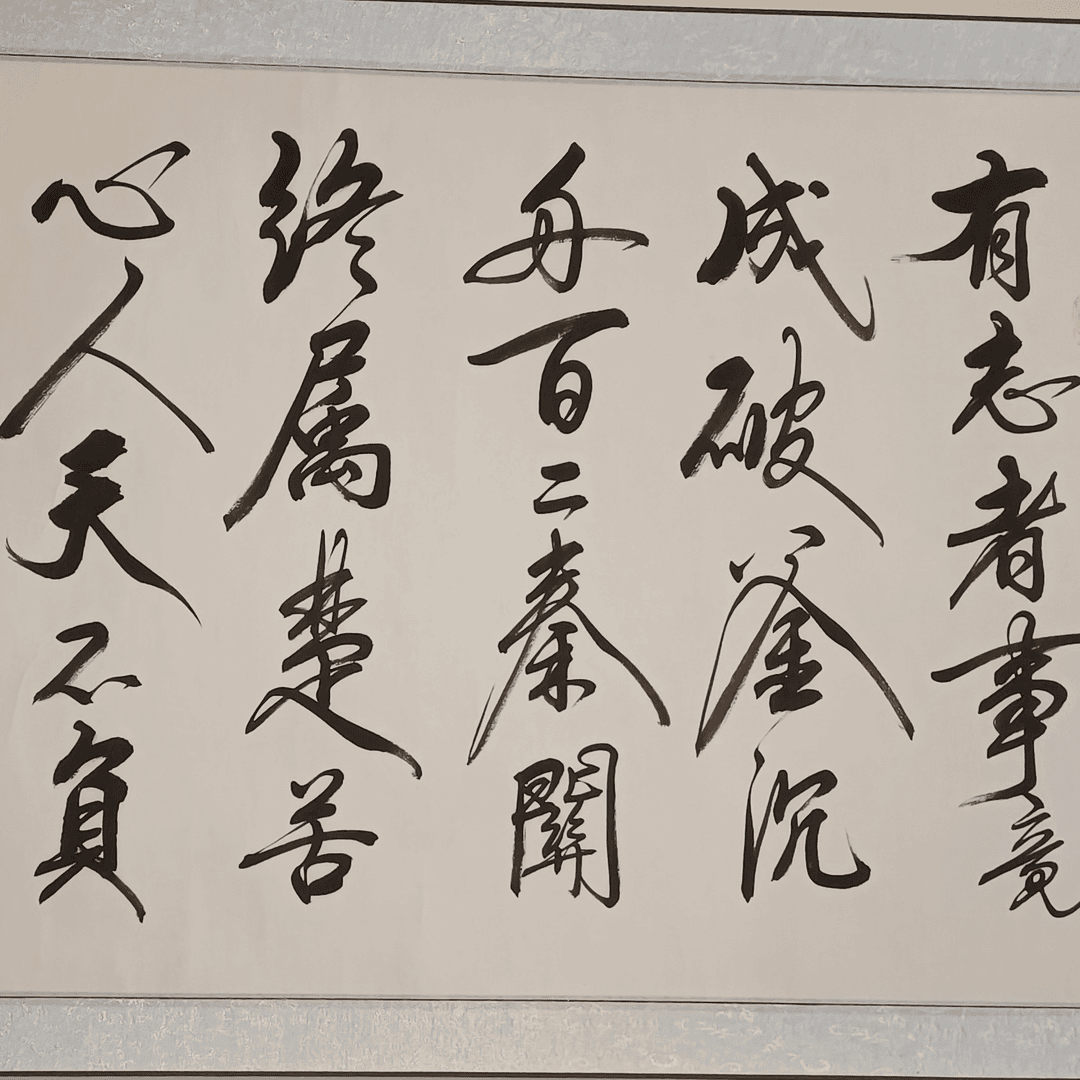 有志者事竟
成破釜沉
舟百二秦關
終屬楚苦
心人天不負